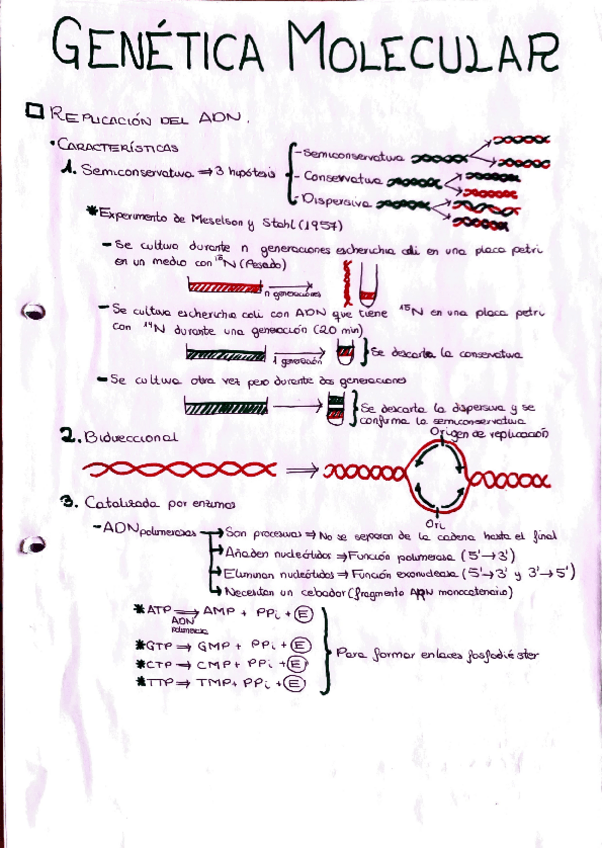 GENÉTICA MOLECULAR
REPLICACIÓN DEL ADN.
• CARACTERÍSTICAS
1. Semiconservativa ⇒ 3 hipótesis
- Semiconservativa
- Conservativa
- Dispersiva
* Experimento de Meselson y Stahl (1957)
- Se cultiva durante n generaciones escherichia coli en una placa petri
en un medio con ¹⁵N (Pesado)
n generaciones
- Se cultiva escherichia coli con ADN que tiene ¹⁵N en una placa petri
con ¹⁴N durante una generación (20 min)
1 generación
Se descarta la conservativa
- Se cultiva otra vez pero durante dos generaciones
Se descarta la dispersiva y se
confirma la semiconservativa
2. Bidireccional
Origen de replicación
Ori
3. Catalizada por enzimas
- ADN polimerasas
Son procesivas ⇒ No se separan de la cadena hasta el final
Añaden nucleótidos ⇒ Función polimerasa (5'→3')
Eliminan nucleótidos ⇒ Función exonucleasa (5'→3' y 3'→5')
Necesitan un cebador (fragmento ARN monocatenario)
* ATP ⇒ AMP + PPi + E
ADN
polimerasa
* GTP ⇒ GMP + PPi + E
* CTP ⇒ CMP + PPi + E
* TTP ⇒ TMP + PPi + E
Para formar enlaces fosfodiéster